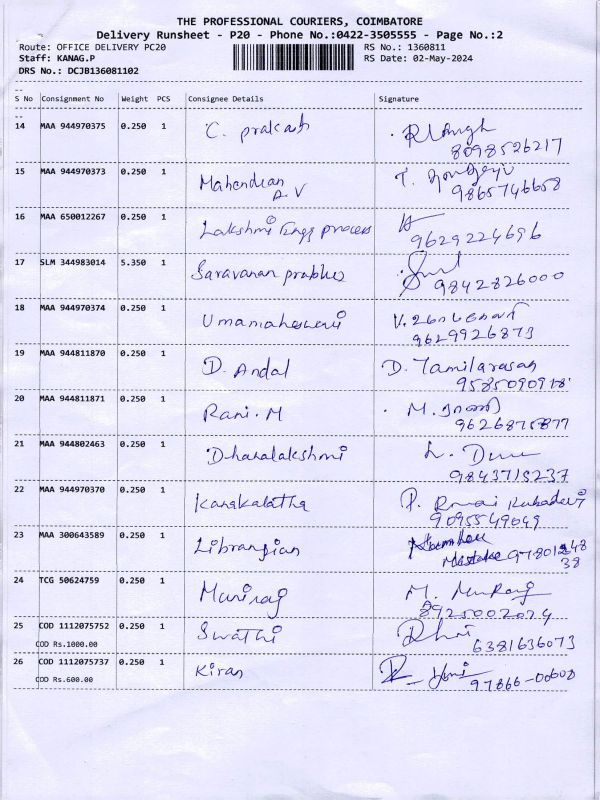 THE PROFESSIONAL COURIERS, COIMBATORE
Delivery Runsheet - P20 - Phone No.:0422-3505555 - Page No.:2
Route: OFFICE DELIVERY PC20 RS No.: 1360811
Staff: KANAG.P RS Date: 02-May-2024
DRS No.: DCJB136081102
--
S No Consignment No Weight PCS Consignee Details Signature
--
14 MAA 944970375 0.250 1 C. prakash
8098526217
15 MAA 944970373 0.250 1 Mahendran
A.V 9865746658
16 MAA 650012267 0.250 1 Lakshmi Engg process
9629224696
17 SLM 344983014 5.350 1 Saravanan prabhu
9842826000
18 MAA 944970374 0.250 1 Umamaheswari V.
9629926873
19 MAA 944811870 0.250 1 D. Andal D. Tamilarasan
9585090918
20 MAA 944811871 0.250 1 Rani.M M.
9626875877
21 MAA 944802463 0.250 1 Dhanalakshmi
9843715237
22 MAA 944970370 0.250 1 Kanakalatha P.
9095549049
23 MAA 300643589 0.250 1 Librarian
24 TCG 50624759 0.250 1 Muniraj M.
8925002074
25 COD 1112075752 0.250 1 Swathi
COD Rs.1000.00 6381636073
26 COD 1112075737 0.250 1 Kiran
COD Rs.600.00 97866-00608